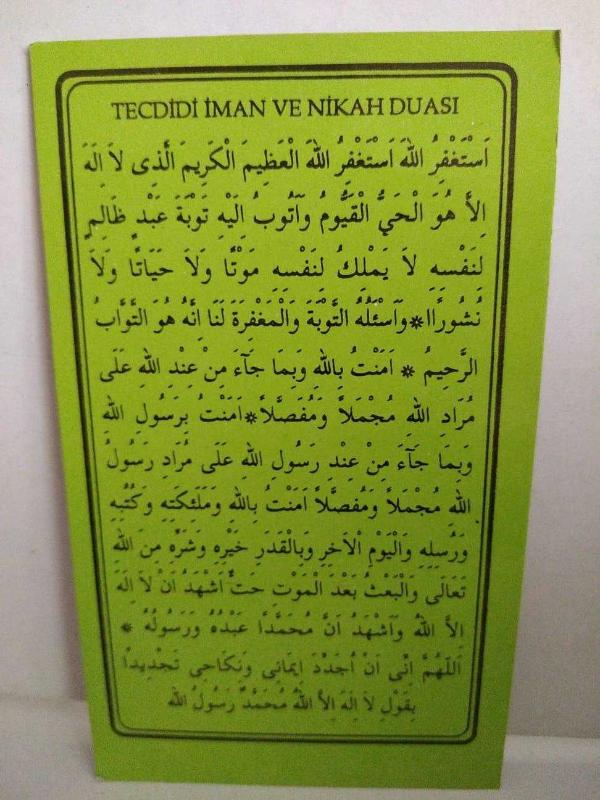 TECDİDİ İMAN VE NİKAH DUASI
اَسْتَغْفِرُ اللهَ اَسْتَغْفِرُ اللهَ الْعَظِيمَ الْكَرِيمَ الَّذِى لاَ اِلَهَ
اِلاَّ هُوَ الْحَيُّ الْقَيُّومُ وَاَتُوبُ اِلَيْهِ تَوْبَةَ عَبْدٍ ظَالِمٍ
لِنَفْسِهِ لاَ يَمْلِكُ لِنَفْسِهِ مَوْتًا وَلاَ حَيَاتًا وَلاَ
نُشُورًاا * وَاَسْئَلُهُ التَّوْبَةَ وَالْمَغْفِرَةَ لَنَا اِنَّهُ هُوَ التَّوَّابُ
الرَّحِيمُ * اَمَنْتُ بِاللهِ وَبِمَا جَآءَ مِنْ عِنْدِ اللهِ عَلَى
مُرَادِ اللهِ مُجْمَلاً وَمُفَصَّلاً * اَمَنْتُ بِرَسُولِ اللهِ
وَبِمَا جَآءَ مِنْ عِنْدِ رَسُولِ اللهِ عَلَى مُرَادِ رَسُولُ
اللهِ مُجْمَلاً وَمُفَصَّلاً اَمَنْتُ بِاللهِ وَمَلَئِكَتِهِ وَكُتُبِهِ
وَرُسُلِهِ وَالْيَوْمِ الْاَخِرِ وَبِالْقَدَرِ خَيْرِهِ وَشَرِّهِ مِنَ اللهِ
تَعَالَى وَالْبَعْثُ بَعْدَ الْمَوْتِ حَتٌّ اَشْهَدُ اَنْ لاَ اِلَهَ
اِلاَّ اللهُ وَاَشْهَدُ اَنَّ مُحَمَّدًا عَبْدُهُ وَرَسُولُهُ *
اَللّهُمَّ اِنِّى اَنْ اُجَدِّدَ اِيمَانِى وَنِكَاحِى تَجْدِيدًا
بِقَوْلِ لاَ اِلَهَ اِلاَّ اللهُ مُحَمَّدٌ رَسُولُ اللهِ